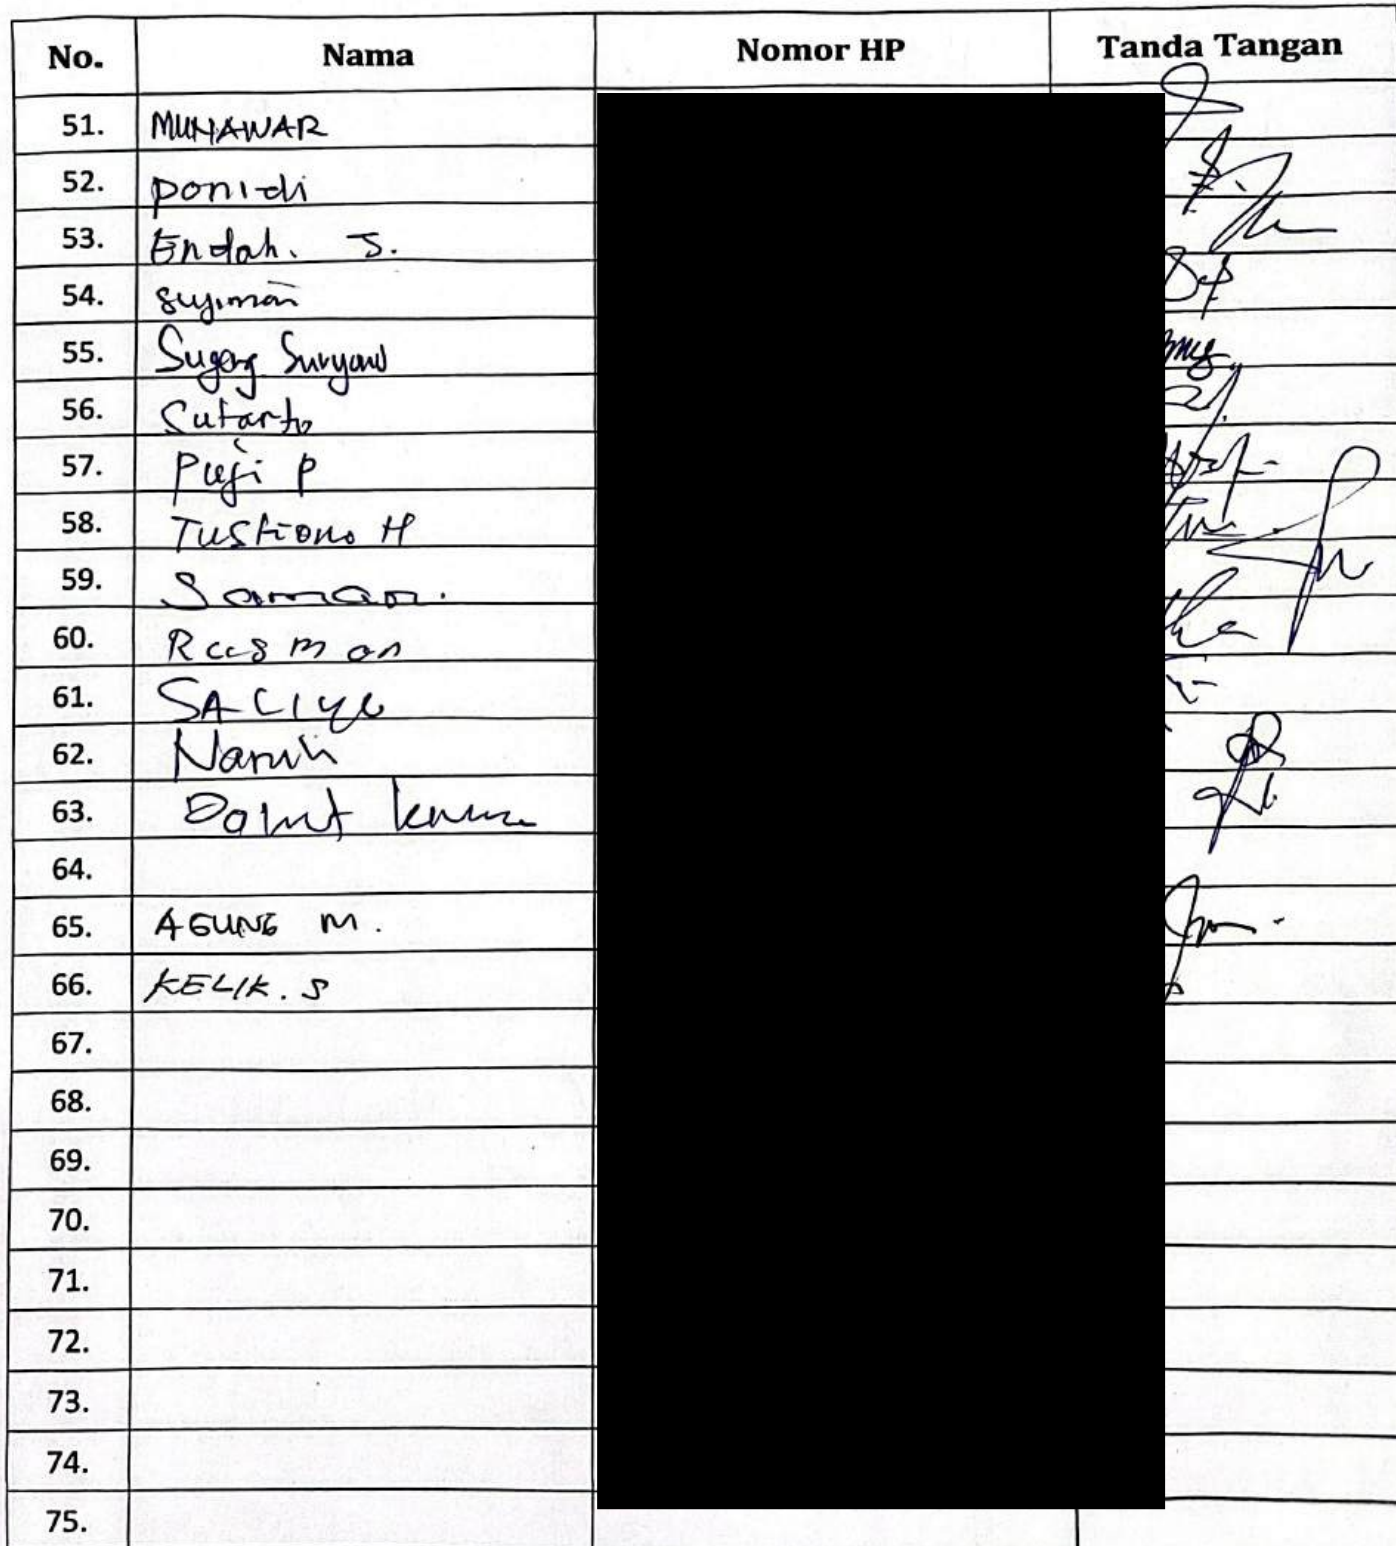 No. Nama Nomor HP Tanda Tangan
51. MUNAWAR
52. Ponidi
53. Endah. S.
54. sujiman
55. Sugeng Suryono
56. Sutarto
57. Puji P
58. Tustiono H
59. Saman.
60. Rusman
61. SALIYO
62.
63.
64.
65. AGUNG M.
66. KELIK. S
67.
68.
69.
70.
71.
72.
73.
74.
75.